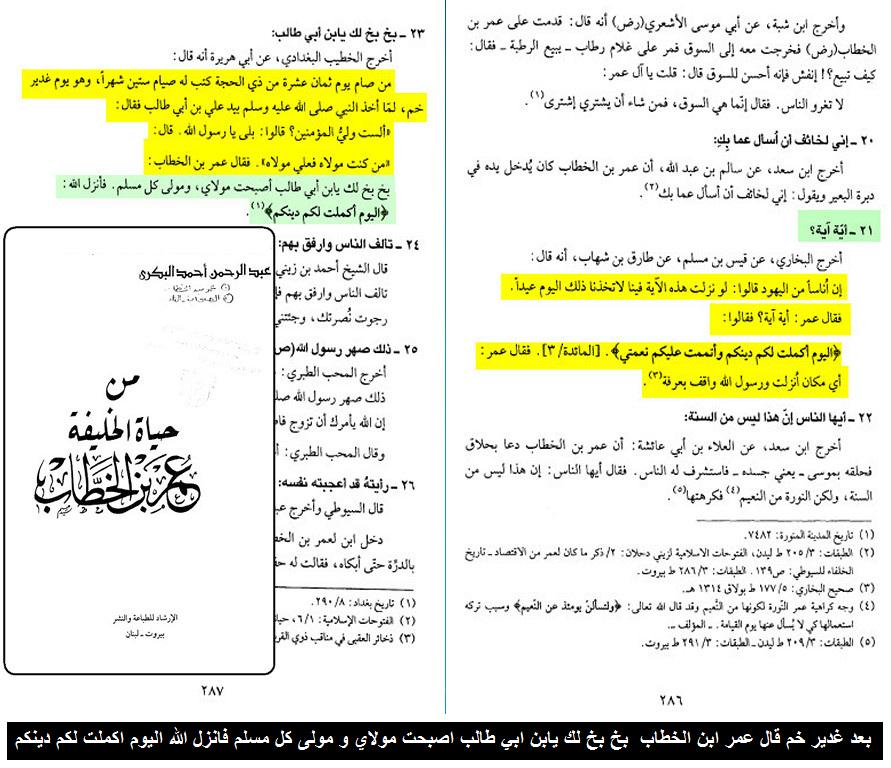 وأخرج ابن شبة، عن أبي موسى الأشعري(رض) أنه قال: قدمت على عمر بن
الخطاب(رض) فخرجت معه إلى السوق فمر على غلام رطاب ـ يبيع الرطبة ـ فقال:
كيف تبيع؟! إنفش فإنه أحسن للسوق قال: قلت يا آل عمر:
لا تغرو الناس. فقال إنّما هي السوق، فمن شاء أن يشتري إشترى(١).
٢٠ ـ إني لخائف أن أسأل عما بِكِ:
أخرج ابن سعد، عن سالم بن عبد الله، أن عمر بن الخطاب كان يُدخل يده في
دبرة البعير ويقول: إني لخائف أن أسأل عما بك(٢).
٢١ ـ أيّة آية؟
أخرج البخاري، عن قيس بن مسلم، عن طارق بن شهاب، أنه قال:
إن أناساً من اليهود قالوا: لو نزلت هذه الآية فينا لاتخذنا ذلك اليوم عيداً.
فقال عمر: أية آية؟ فقالوا:
﴿اليوم أكملت لكم دينكم وأتممت عليكم نعمتي﴾. [المائدة/ ٣]. فقال عمر:
أي مكان أنزلت ورسول الله واقف بعرفة(٣).
٢٢ ـ أيها الناس إنّ هذا ليس من السنة:
أخرج ابن سعد، عن العلاء بن أبي عائشة: أن عمر بن الخطاب دعا بحلاق
فحلقه بموسى ـ يعني جسده ـ فاستشرف له الناس. فقال أيها الناس: إن هذا ليس من
السنة، ولكن النورة من النعيم(٤) فكرهتها(٥).
(١) تاريخ المدينة المنورة: ٧٤٨٢.
(٢) الطبقات: ٢٠٥/٣ ط ليدن، الفتوحات الاسلامية لزيني دحلان: ٢/ ذكر ما كان لعمر من الاقتصاد ـ تاريخ
الخلفاء للسيوطي: ص١٣٩. الطبقات: ٢٨٦/٣ ط بيروت.
(٣) صحيح البخاري: ١٧٧/٥ ط بولاق ١٣١٤ هـ.
(٤) وجه كراهية عمر النّورة لكونها من النَّعيم وقد قال الله تعالى: ﴿ولتسألنّ يومئذ عن النَّعيم﴾ وسبب تركه
استعمالها كي لا يُسأل عنها يوم القيامة. ـ المؤلف ـ.
(٥) الطبقات: ٢٠٩/٣ ط ليدن ـ الطبقات: ٢٩١/٣ ط بيروت.
٢٨٦
٢٣ ـ بخ بخ لك يابن أبي طالب:
أخرج الخطيب البغدادي، عن أبي هريرة أنه قال:
من صام يوم ثمان عشرة من ذي الحجة كتب له صيام ستين شهراً، وهو يوم غدير
خم، لمّا أخذ النبي صلى الله عليه وسلم بيد علي بن أبي طالب فقال:
«ألست وليُّ المؤمنين؟ قالوا: بلى يا رسول الله. قال:
«من كنت مولاه فعلي مولاه». فقال عمر بن الخطاب:
بخ بخ لك يابن أبي طالب أصبحت مولاي، ومولى كل مسلم. فأنزل الله:
﴿اليوم أكملت لكم دينكم﴾(١).
٢٤ ـ تالف الناس وارفق بهم:
قال الشيخ أحمد بن زيني
تالف الناس وارفق بهم
رجوت نُصرتك، وجئتني
٢٥ ـ ذلك صهر رسول الله(ص
أخرج المحب الطبري:
ذلك صهر رسول الله
إن الله يأمرك أن تزوج
وقال المحب الطبري:
٢٦ ـ رأيتهُ قد اعجبته نفسه:
قال السيوطي وأخرج
دخل ابن لعمر بن
بالدرّة حتّى أبكاه، فقالت له
(١) تاريخ بغداد: ٢٩٠/٨.
(٢) الفتوحات الإسلامية: ٦/١،
(٣) ذخائر العقبى في مناقب ذوي
٢٨٧
عبد الرحمن أحمد البكري
من
حياة الخليفة
عمر بن الخطاب
الإرشاد للطباعة والنشر
بيروت ـ لبنان
بعد غدير خم قال عمر ابن الخطاب بخ بخ لك يابن ابي طالب اصبحت مولاي و مولى كل مسلم فانزل الله اليوم اكملت لكم دينكم